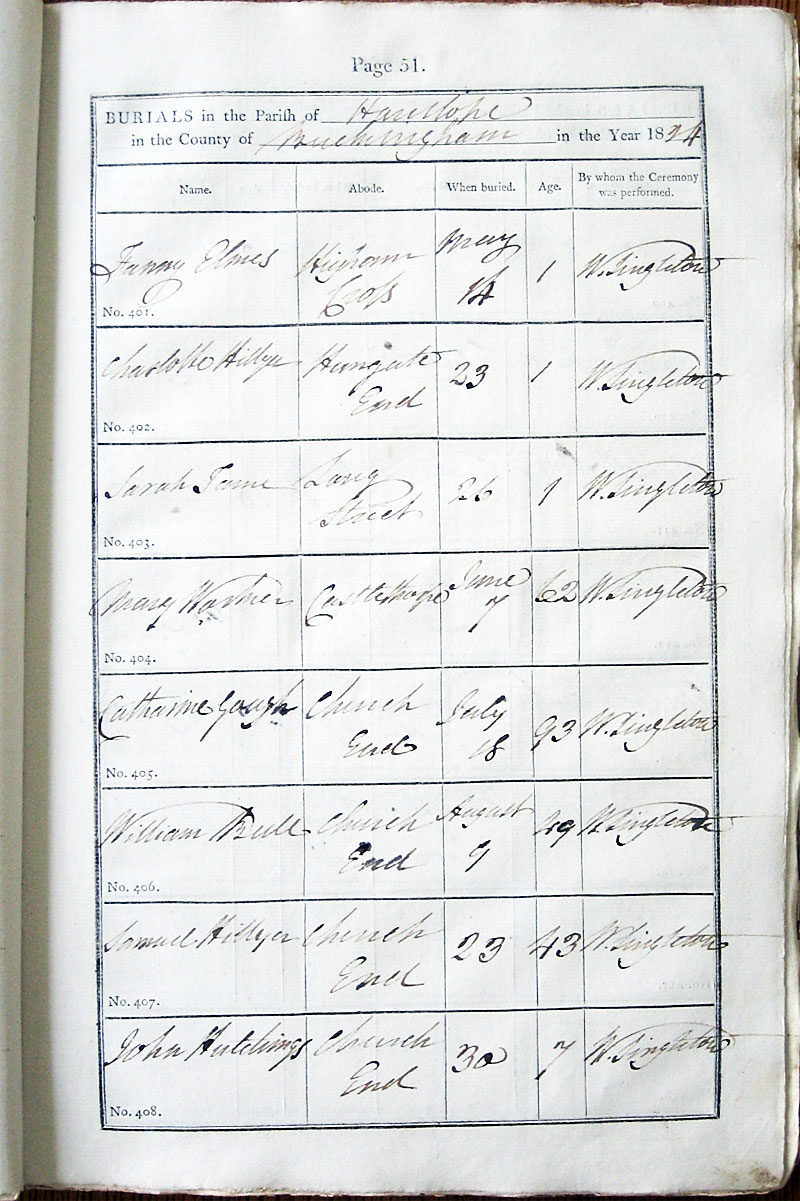 Page 51.
BURIALS in the Parish of Hanslope
in the County of Buckingham in the Year 1824
Name. Abode. When buried. Age. By whom the Ceremony was performed.
Fanny Elmes Higham Cross May 14 1 W. Singleton
No. 401.
Charlotte Hillyer Hungate End 23 1 W. Singleton
No. 402.
Sarah Tame Long Street 26 1 W. Singleton
No. 403.
Mary Warner Castlethorpe June 7 62 W. Singleton
No. 404.
Catharine Gough Church End July 18 93 W. Singleton
No. 405.
William Bull Church End August 9 49 W. Singleton
No. 406.
Samuel Hillyer Church End 23 43 W. Singleton
No. 407.
John Hutchings Church End 30 7 W. Singleton
No. 408.